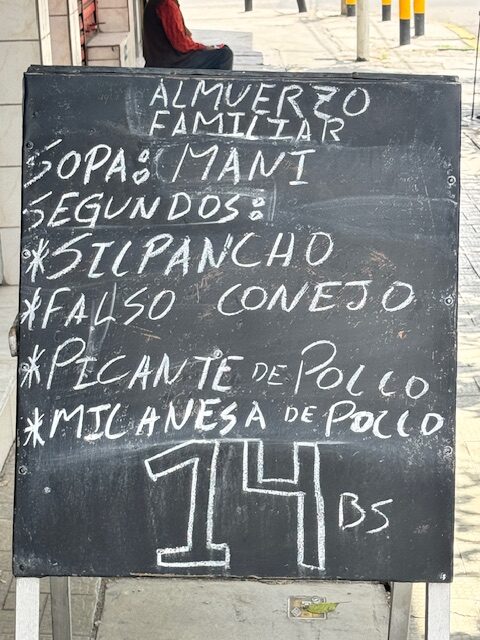 ALMUERZO
FAMILIAR
SOPA: MANI
SEGUNDOS:
*SILPANCHO
*FALSO CONEJO
*PICANTE DE POLLO
*MILANESA DE POLLO
14 BS